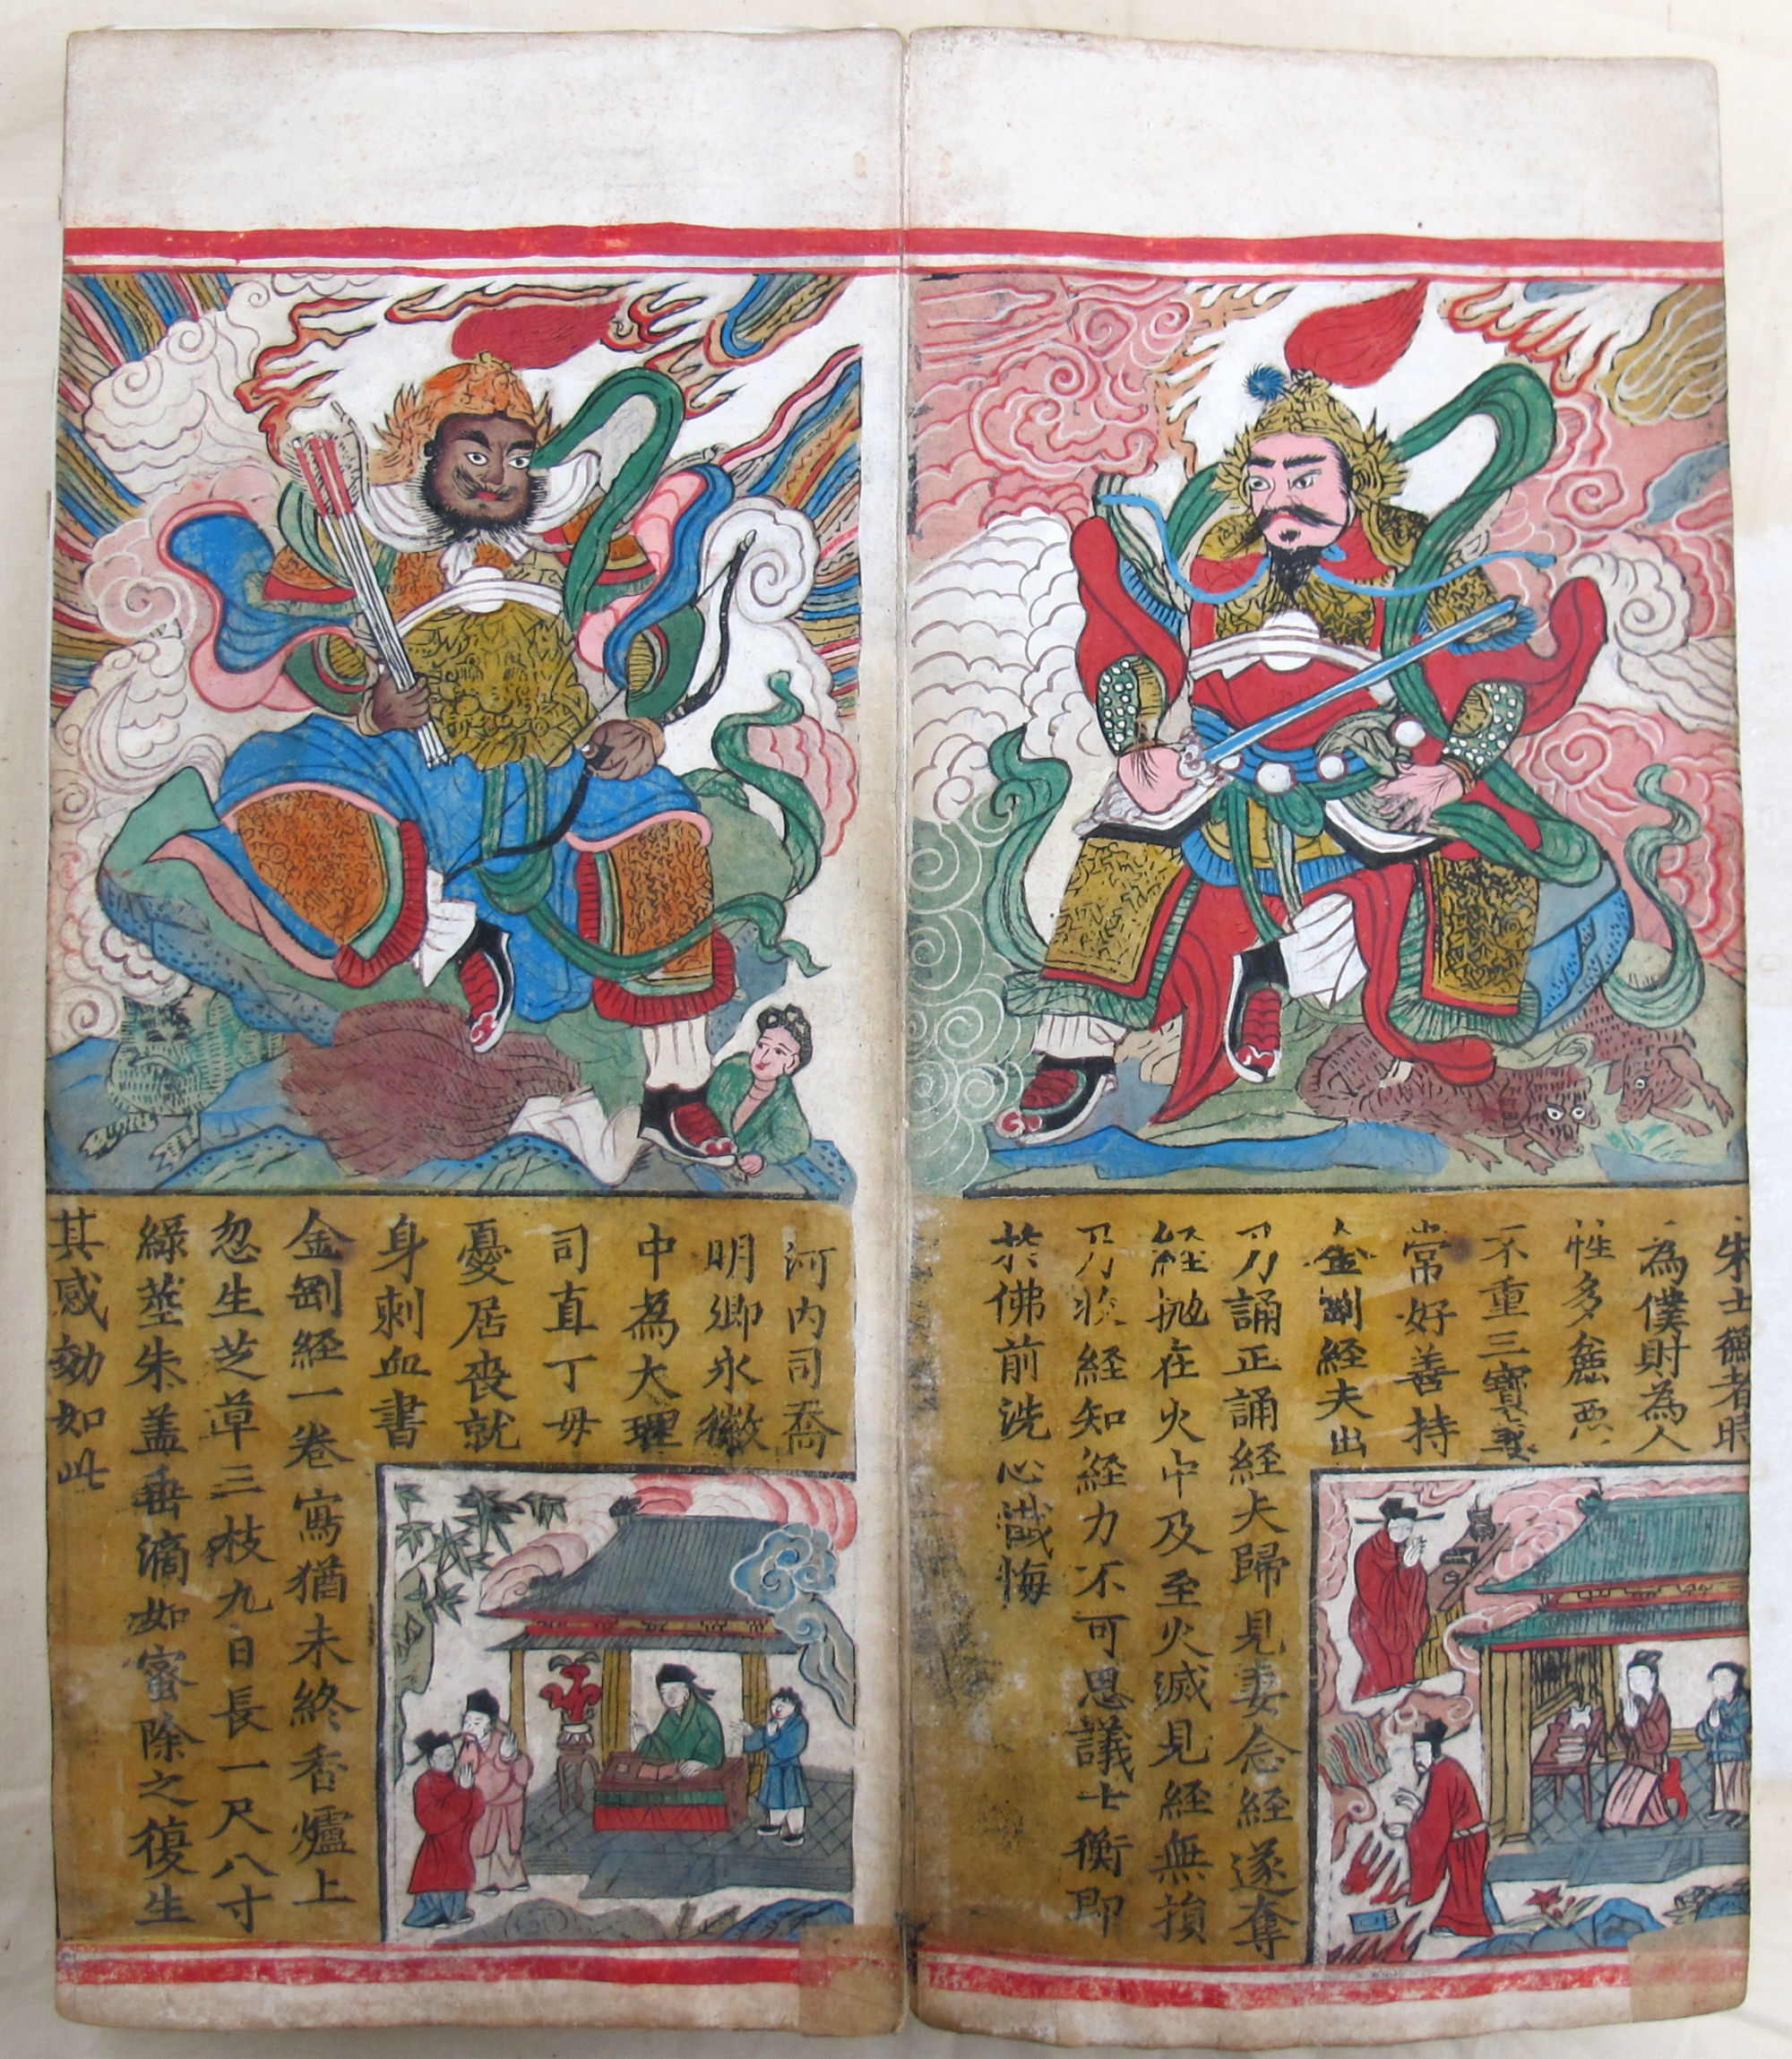 士衡者時
為僕財為人
性多麁悪
不重三寶妻
常好善持
金剛経夫出
誦正誦経夫歸見妻念経遂奪
経抛在火中及至火滅見経無損
収経知経力不可思議士衡即
於佛前洗心懺悔
河内司喬
明卿永徽
中為大理
司直丁毋
憂居喪就
身刺血書
金剛経一卷寫猶未終香爐上
忽生芝草三枝九日長一尺八寸
綠莖朱盖垂滴如蜜除之復生
其感効如此